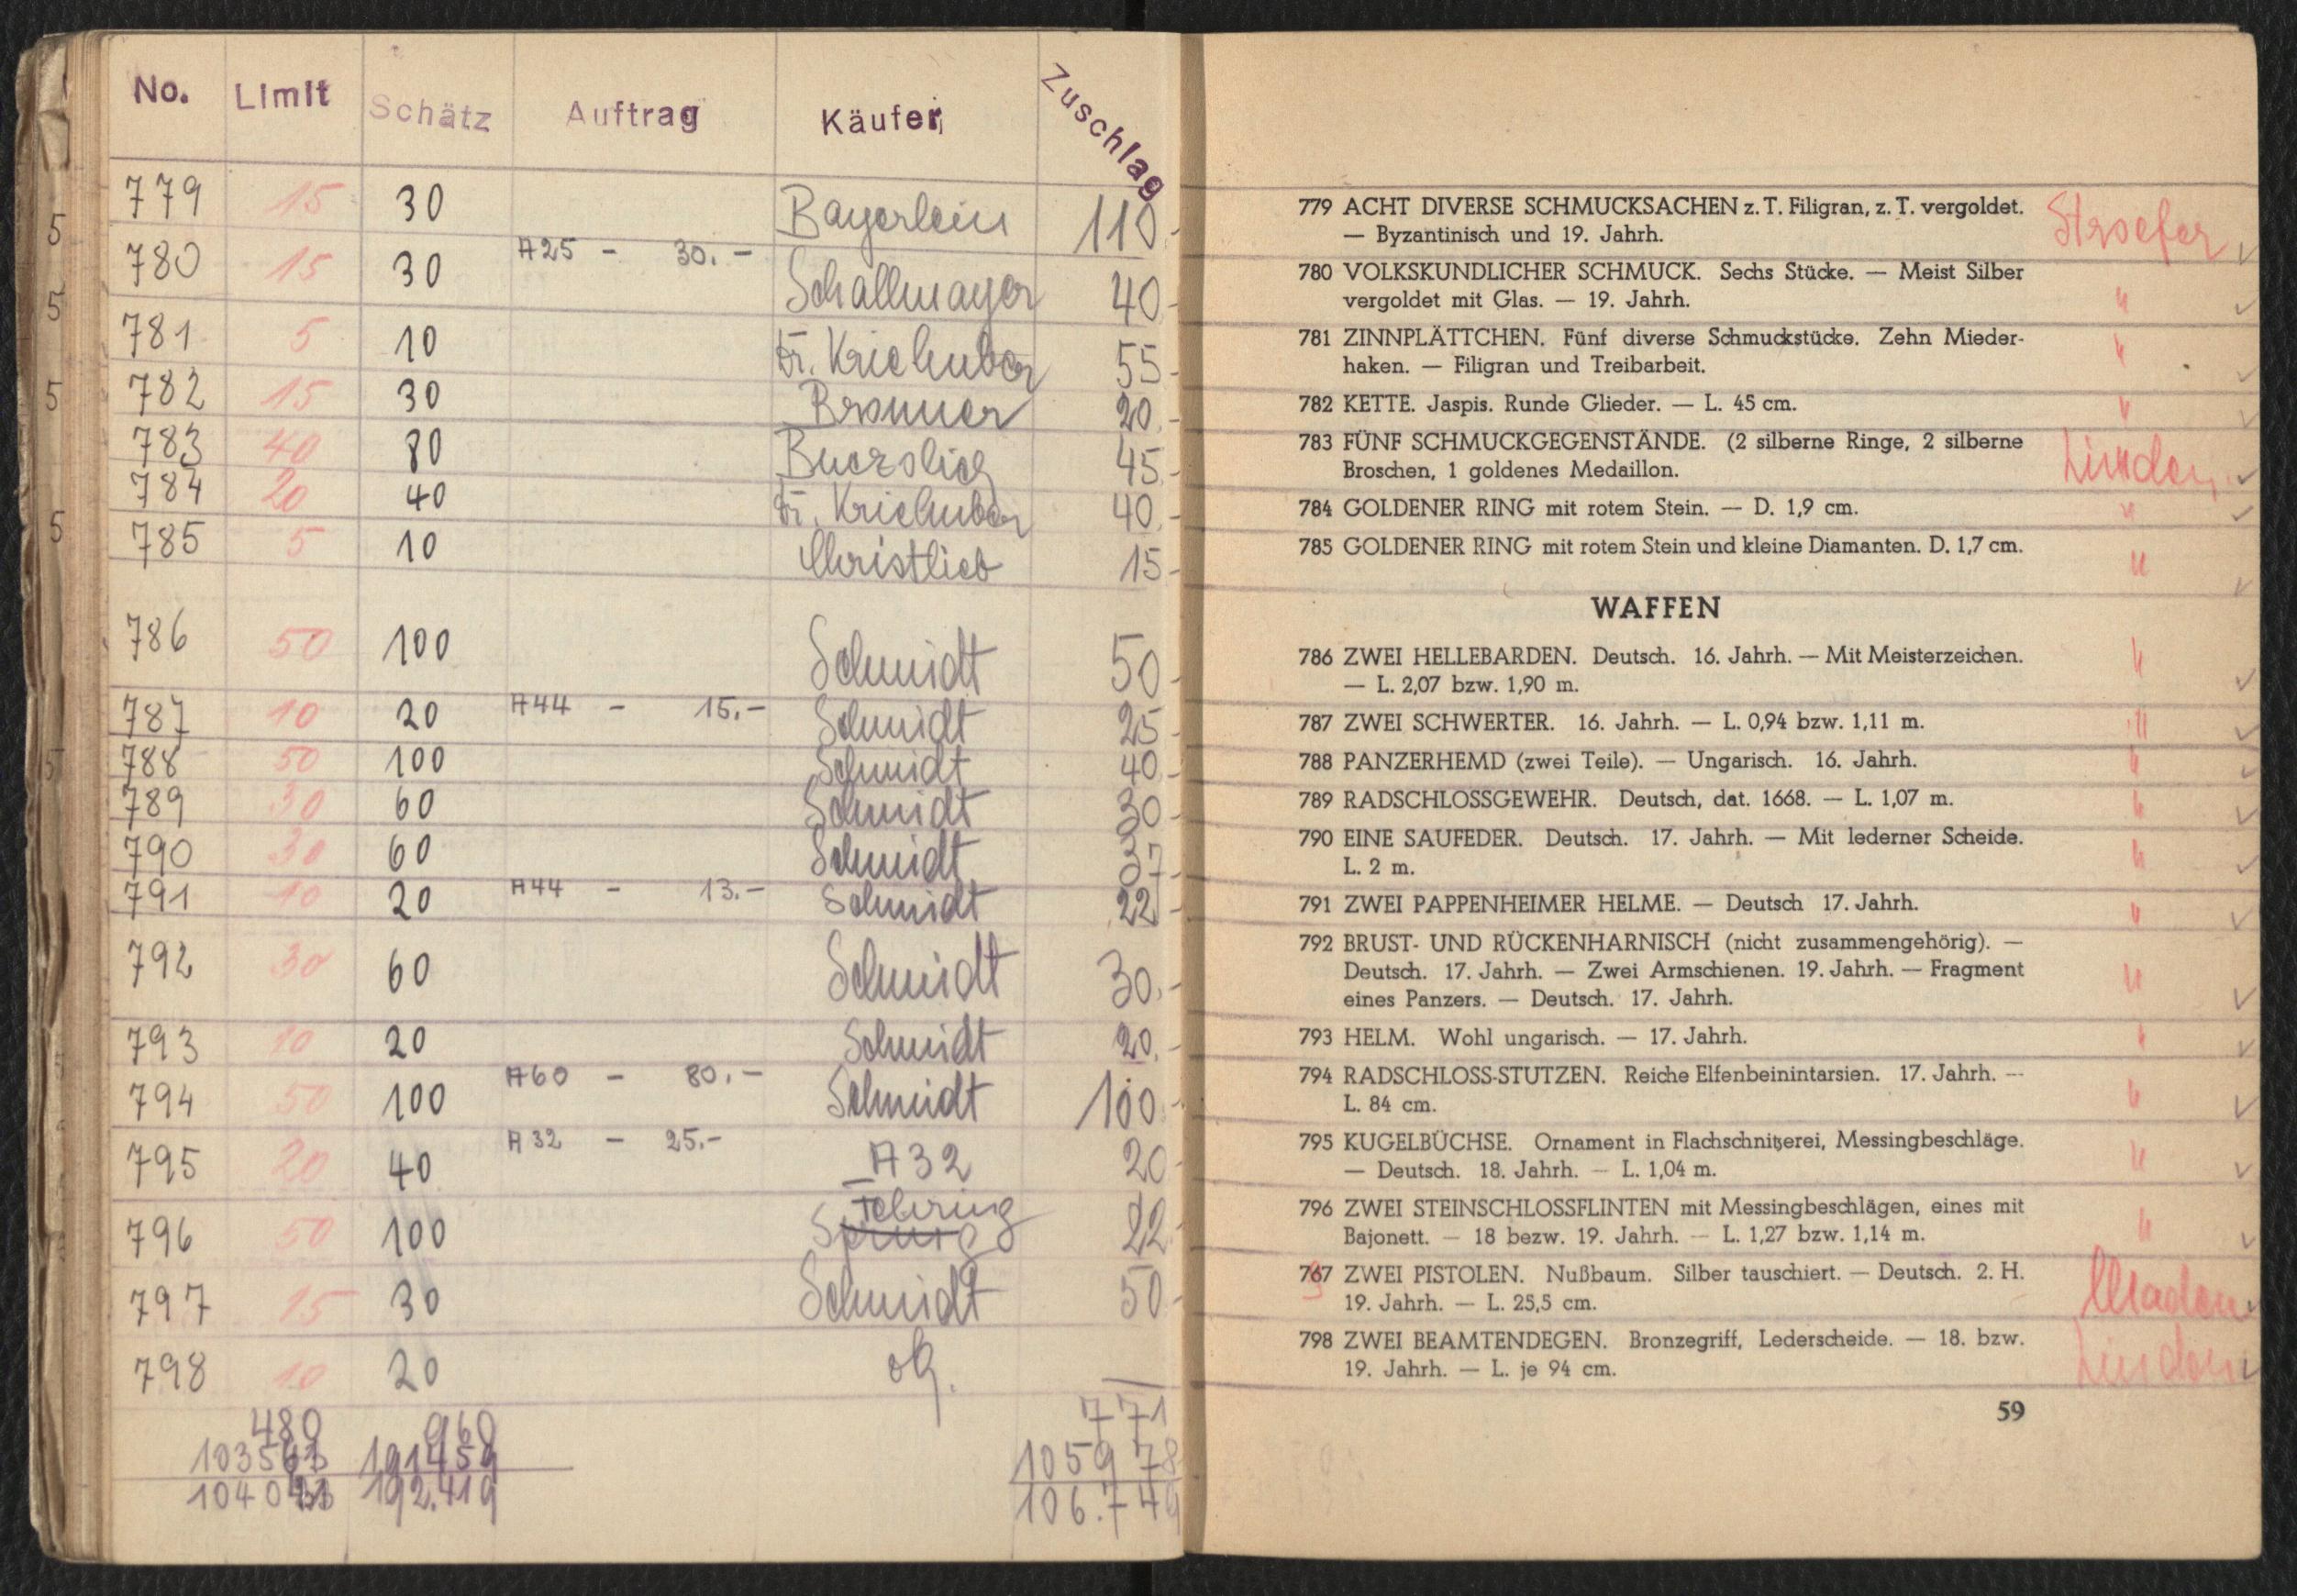 No. Limit Schätz Auftrag Käufer Zuschlag
779 15 30 Bayerlein 110.-
780 15 30 A25 - 30.- Schallmayer 40.-
781 5 10 Dr. Kriehuber 55.-
782 15 30 Bronner 20.-
783 40 80 45.-
784 20 40 Dr. Kriehuber 40.-
785 5 10 Christlieb 15.-
786 50 100 Schmidt 50.-
787 10 20 A44 - 15.- Schmidt 25.-
788 50 100 Schmidt 40.-
789 30 60 Schmidt 30.-
790 30 60 Schmidt 37.-
791 10 20 A44 - 13.- Schmidt 22.-
792 30 60 Schmidt 30.-
793 10 20 Schmidt 20.-
794 50 100 A60 - 80.- Schmidt 100.-
795 20 40 A32 - 25.- A32 20.-
796 50 100 Fehring 22.-
797 15 30 Schmidt 50.-
798 10 20 —
480 960 771
191459 105978
192.419 106.749
5
5
5
5
5
779 ACHT DIVERSE SCHMUCKSACHEN z. T. Filigran, z. T. vergoldet. Stroefer
— Byzantinisch und 19. Jahrh.
780 VOLKSKUNDLICHER SCHMUCK. Sechs Stücke. — Meist Silber
vergoldet mit Glas. — 19. Jahrh. "
781 ZINNPLÄTTCHEN. Fünf diverse Schmuckstücke. Zehn Mieder-
haken. — Filigran und Treibarbeit. "
782 KETTE. Jaspis. Runde Glieder. — L. 45 cm. "
783 FÜNF SCHMUCKGEGENSTÄNDE. (2 silberne Ringe, 2 silberne
Broschen, 1 goldenes Medaillon. Linden
784 GOLDENER RING mit rotem Stein. — D. 1,9 cm. "
785 GOLDENER RING mit rotem Stein und kleine Diamanten. D. 1,7 cm. "
WAFFEN
786 ZWEI HELLEBARDEN. Deutsch. 16. Jahrh. — Mit Meisterzeichen. "
— L. 2,07 bzw. 1,90 m.
787 ZWEI SCHWERTER. 16. Jahrh. — L. 0,94 bzw. 1,11 m. "
788 PANZERHEMD (zwei Teile). — Ungarisch. 16. Jahrh. "
789 RADSCHLOSSGEWEHR. Deutsch, dat. 1668. — L. 1,07 m. "
790 EINE SAUFEDER. Deutsch. 17. Jahrh. — Mit lederner Scheide. "
L. 2 m.
791 ZWEI PAPPENHEIMER HELME. — Deutsch 17. Jahrh. "
792 BRUST- UND RÜCKENHARNISCH (nicht zusammengehörig). —
Deutsch. 17. Jahrh. — Zwei Armschienen. 19. Jahrh. — Fragment "
eines Panzers. — Deutsch. 17. Jahrh.
793 HELM. Wohl ungarisch. — 17. Jahrh. "
794 RADSCHLOSS-STUTZEN. Reiche Elfenbeinintarsien. 17. Jahrh. —
L. 84 cm. "
795 KUGELBÜCHSE. Ornament in Flachschnitzerei, Messingbeschläge.
— Deutsch. 18. Jahrh. — L. 1,04 m. "
796 ZWEI STEINSCHLOSSFLINTEN mit Messingbeschlägen, eines mit
Bajonett. — 18 bezw. 19. Jahrh. — L. 1,27 bzw. 1,14 m. "
767 ZWEI PISTOLEN. Nußbaum. Silber tauschiert. — Deutsch. 2. H.
19. Jahrh. — L. 25,5 cm.
798 ZWEI BEAMTENDEGEN. Bronzegriff, Lederscheide. — 18. bzw. Linden
19. Jahrh. — L. je 94 cm.
59